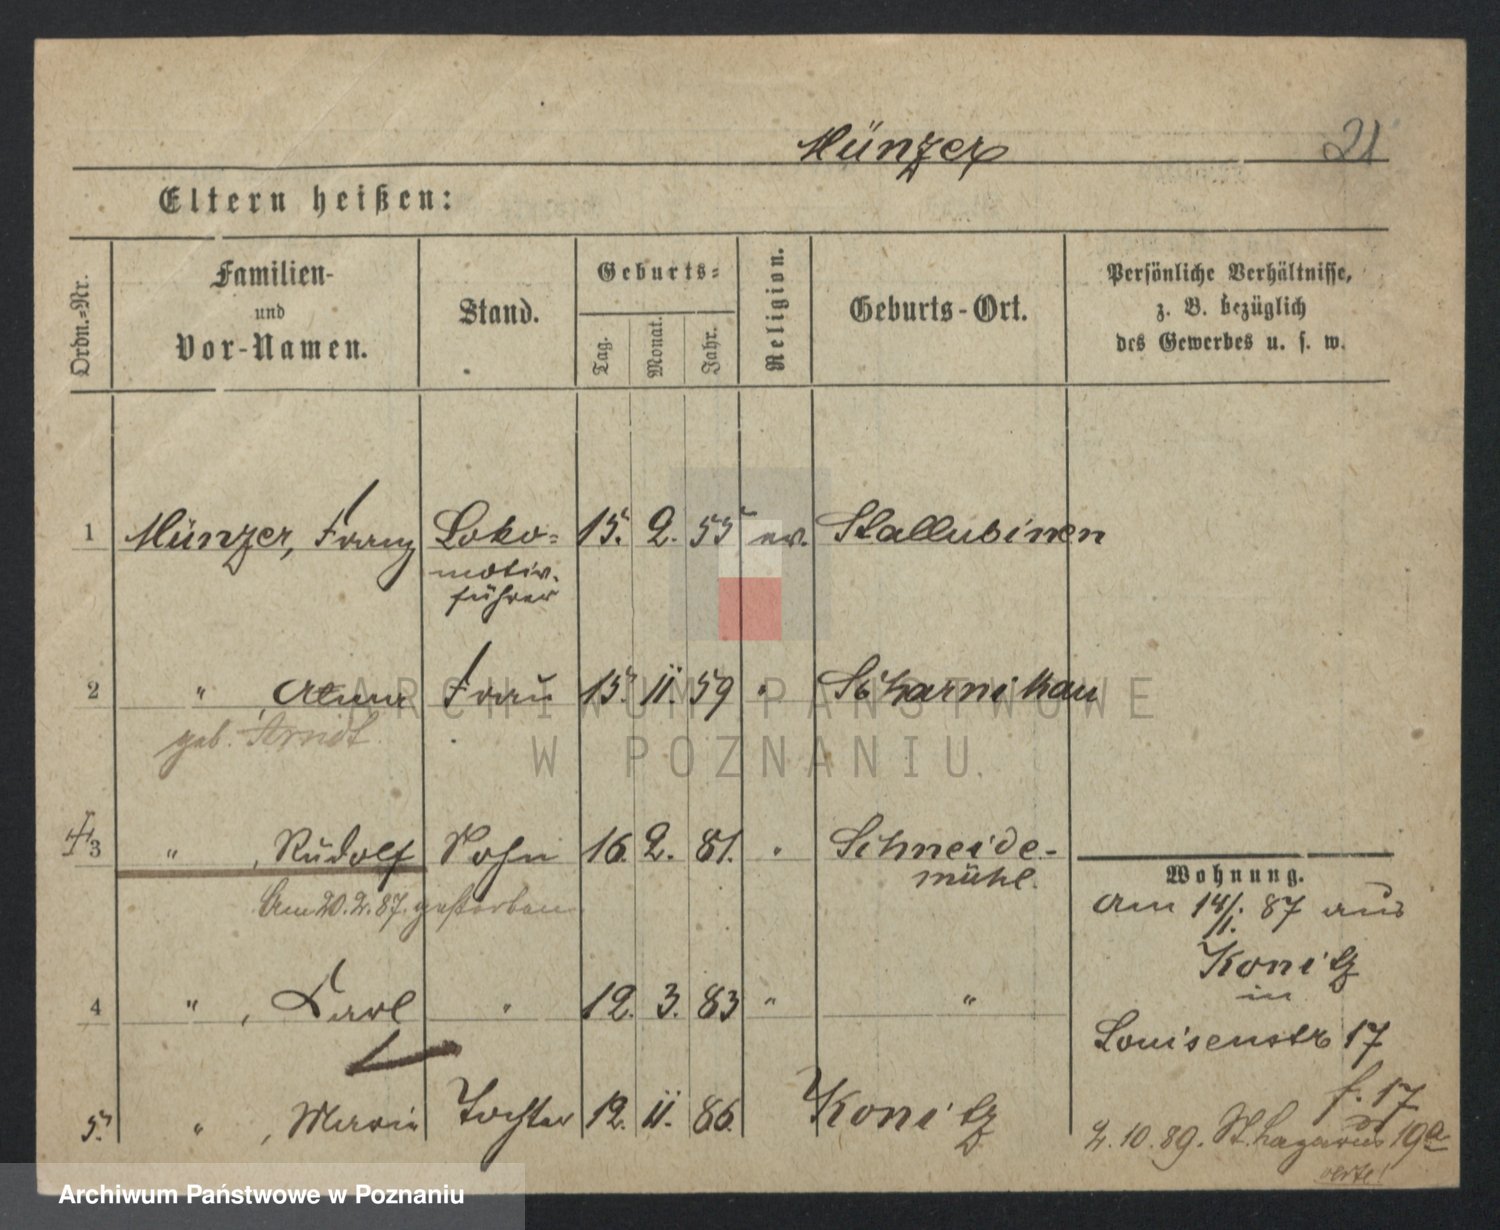 Münzer 21
Eltern heißen:
Ordn.-Nr. Familien- und Vor-Namen. Stand. Geburts- Tag. Monat. Jahr. Religion. Geburts-Ort. Persönliche Verhältnisse, z. B. bezüglich des Gewerbes u. s. w.
1 Münzer, Franz Loko= 15. 2. 55 ev. Stallubinen
motiv.
führer
2 " , Alma Frau 15. 11. 59 " Scharnikau
geb. Arndt
3 " , Rudolf Sohn 16. 2. 81. " Schneide-
mühl.
Am 20.2.87. gestorben
4 " , Karl " 12. 3. 83 " "
5. " , Marie Tochter 12. 11. 86. Konitz
Wohnung.
am 14/1. 87 aus
Konitz
in
Louisenstr 17
f. 17
2. 10. 89. St. Lazarus 19a
verte!
ARCHIWUM PAŃSTWOWE
W POZNANIU
Archiwum Państwowe w Poznaniu